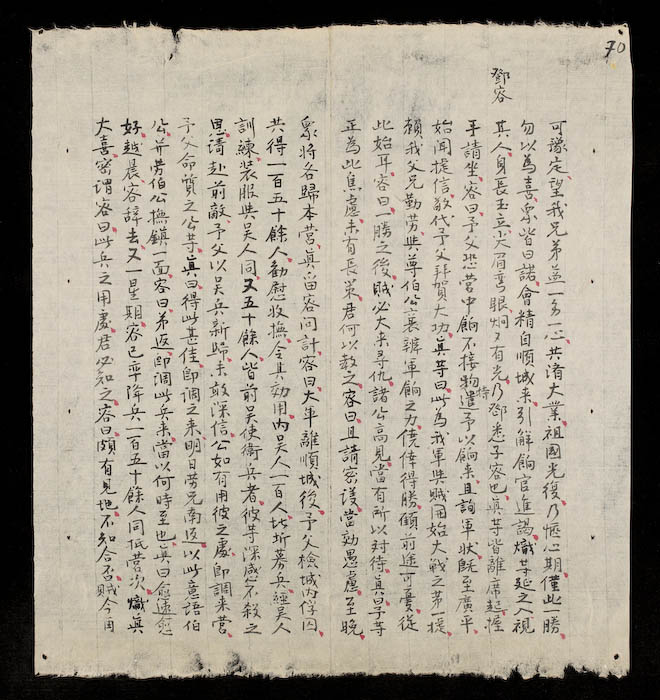 70
鄧容
可豫定望我兄弟益一乃心共濟大業祖國光復乃愜心期僅此一勝
勿以為喜眾皆曰諾會精自順城来引解餉官進謁熾等延之入視
其人身長玉立尖眉彎眼炯又有光乃鄧悉子容也真等皆離席起握
手請坐容曰予父悉營中餉不接特遣予以餉来且詢軍狀既至廣平
始聞捷信敬代予父拜賀大功真等曰此為我軍與賊開始大戰之第一捷
賴我父兄勤勞與尊伯公襄辦軍餉之力僥倖得勝顧前途可憂從
此始耳容曰一勝之後賊必大来尋仇諸公高見當有所以對待真曰某等
正為此焦慮未有長策君何以教之容曰且請密議當効愚慮至晚
眾將各歸本營真留容问計容曰大軍離順城後予父檢城內俘囚
共得一百五十餘人勸慰收撫令其効用內吳人一百人皆圻募兵經吳人
訓練装服與吳人同又五十餘人皆前吳使衛兵者彼等深感不殺之
恩請赴前敵予父以吳兵新歸未敢深信公如有用彼之處即調来營
予父命質之公等真曰得此甚佳即調之来明日勞兄南返以此意語伯
公并勞伯公撫鎮一面容曰弟返即調此兵来當以何時至也真曰愈速愈
好越晨容辭去又一星期容已率降兵一百五十餘人同抵營次熾真
大喜密谓容曰此兵之用處君必知之容曰頗有見地不知合否賊今自